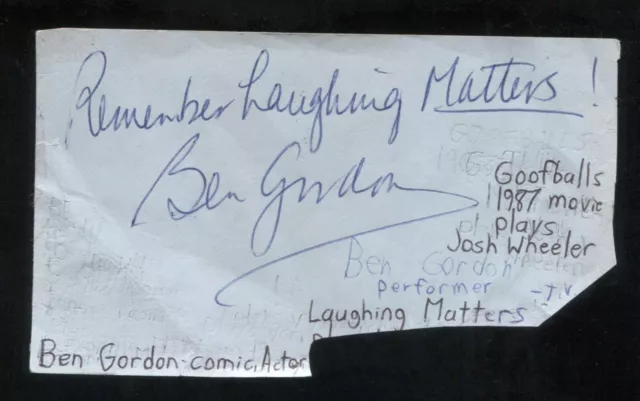 Remember Laughing Matters!
Ben Gordon
Goofballs
1987 movie
plays
Josh Wheeler
Ben Gordon
performer
Laughing Matters -T.V
Ben Gordon-comic, Actor